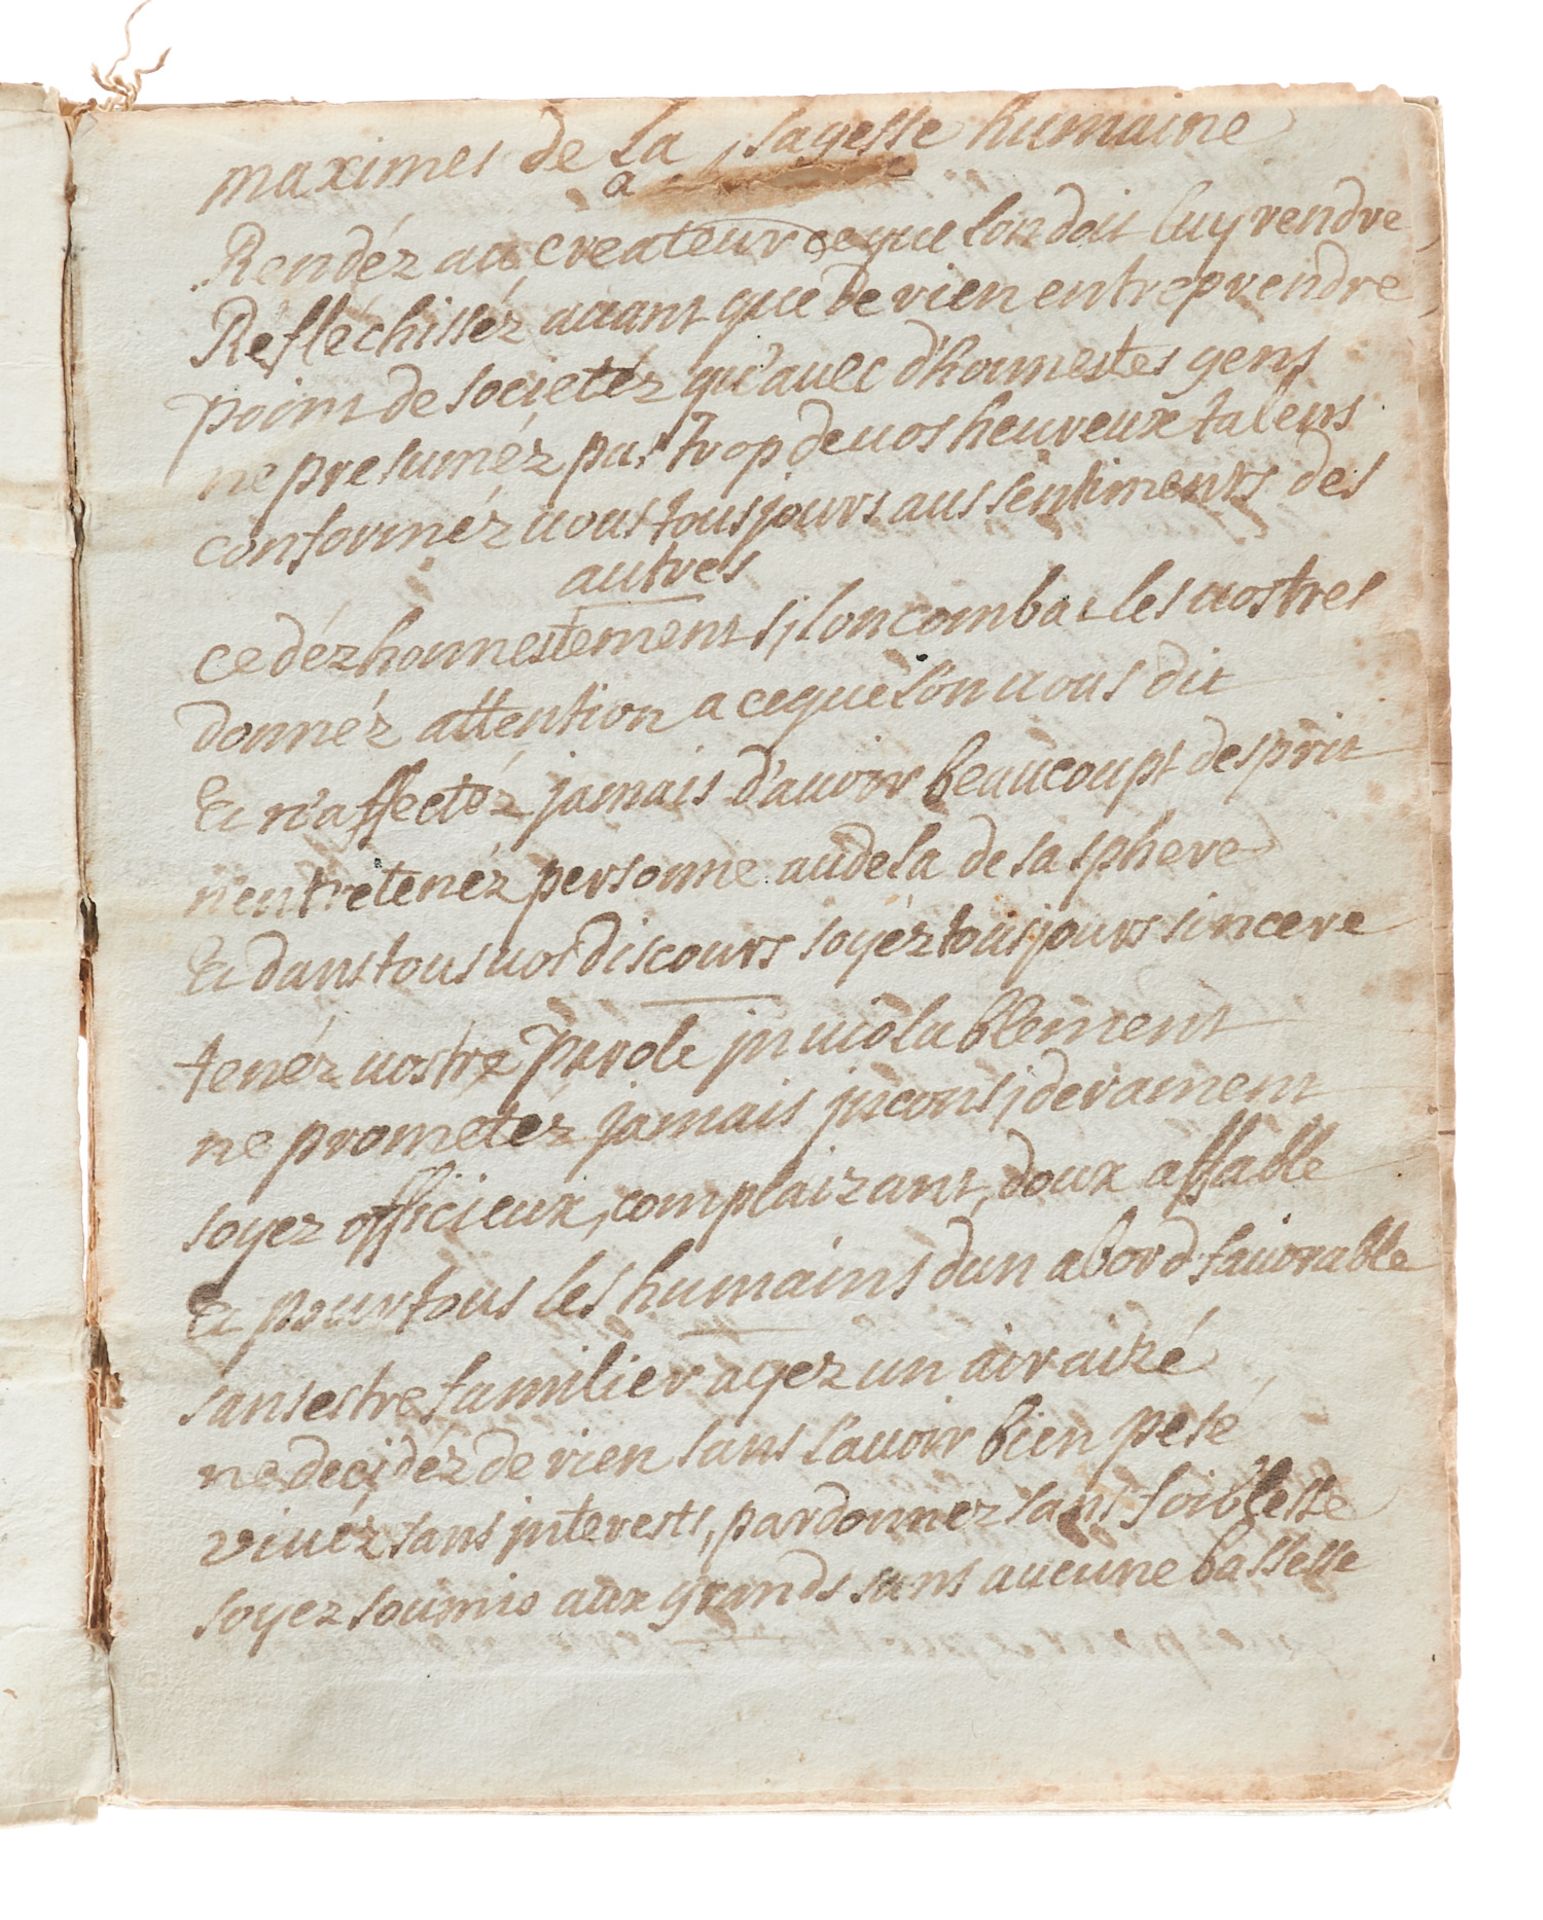 maximes de la sagesse humaine
a
Rendéz au createur ce que londoit luy rendre
Réfléchisséz auant que de rien entreprendre
point de societéz qu'auec d'honnestes gens
ne presuméz pas trop de uos heureux talens
conforméz uous tousjours aus sentiments des
autres
cedéz honnestement si lon combat les uostres
donnéz attention a ceque lon uous dit
Et n'affectéz jamais d'auoir beaucoupt desprit
n'entretenéz personne audela de sa sphere
Et dans tous uos discours soyéz tousjours sincere
tenéz uostre parole jnuiolablement
ne prometez jamais jnconsiderament
soyez officieux, complaizant, doux affable
Et pour tous les humains dun abord fauorable
sans estre familier ayez un air aizé
ne decidéz de rien sans lauoir bien pesé
viuéz sans jnterests, pardonnez sans foiblesse
soyez soumis aux grands sans aucune bassesse